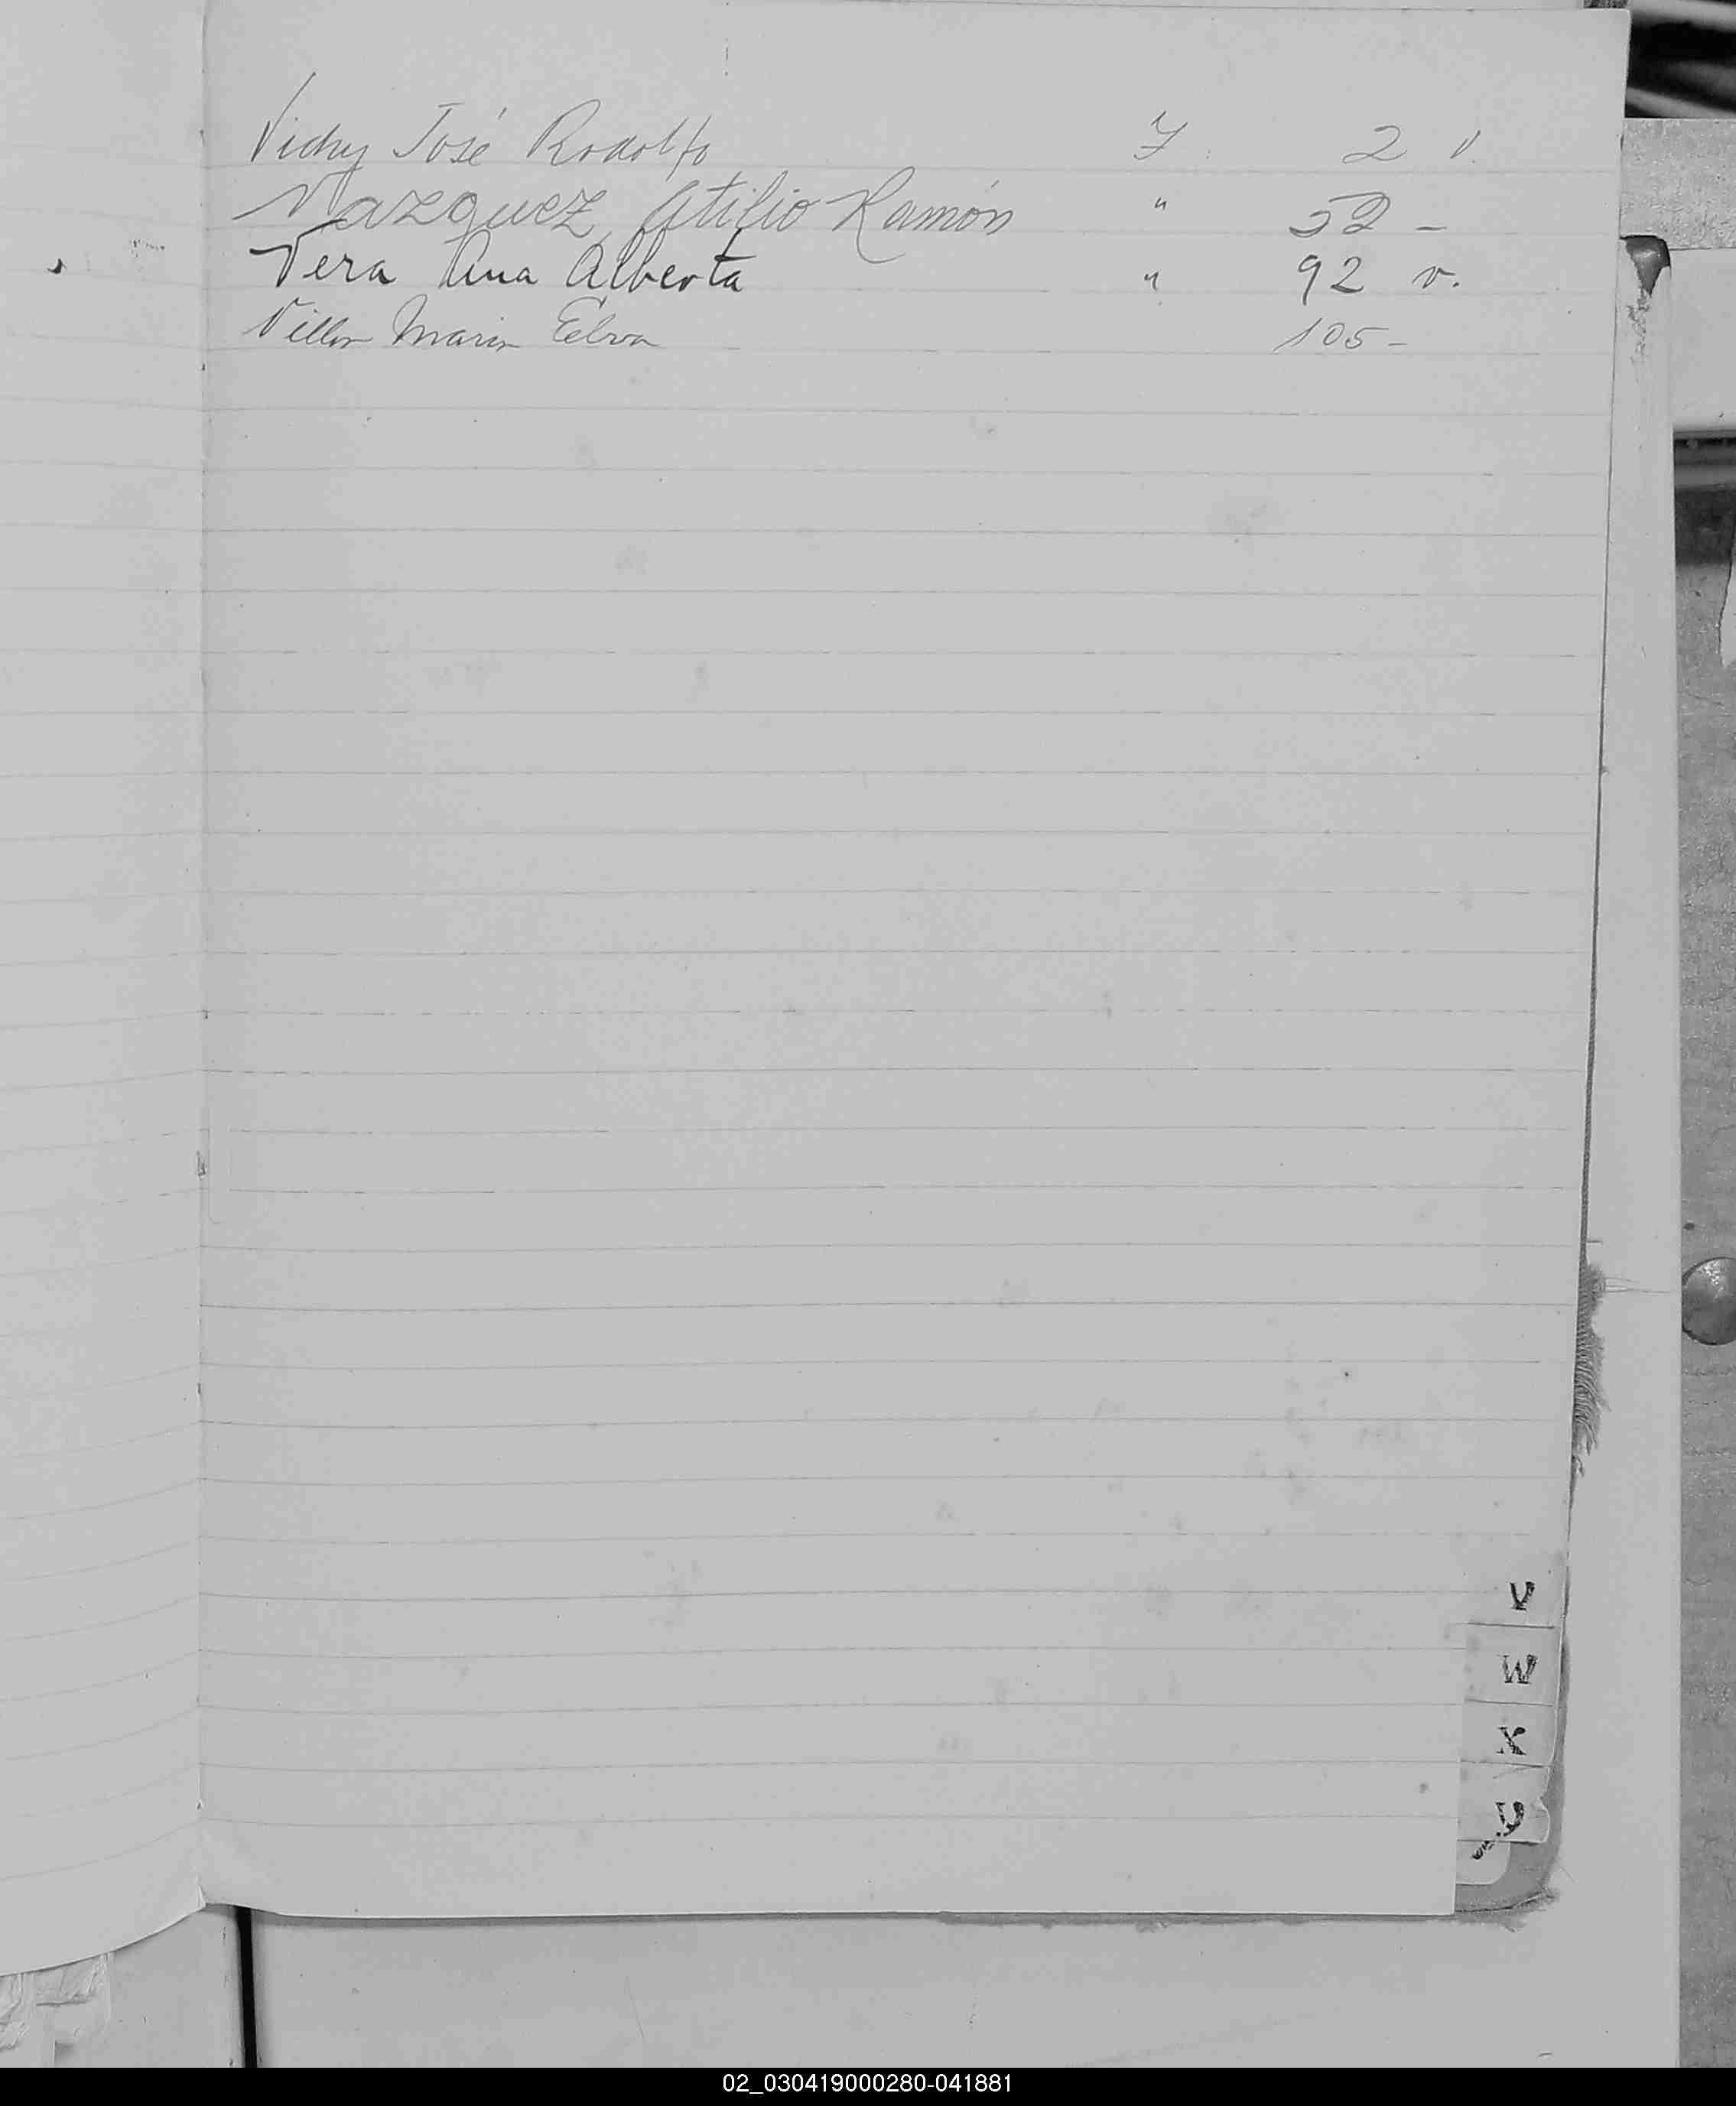 Vichy José Rodolfo F. 2 v.
Vazquez, Atilio Ramón " 52 -
Vera Ana Alberta " 92 v.
Maria 105 -
V
W
X
Y
02_030419000280-041881